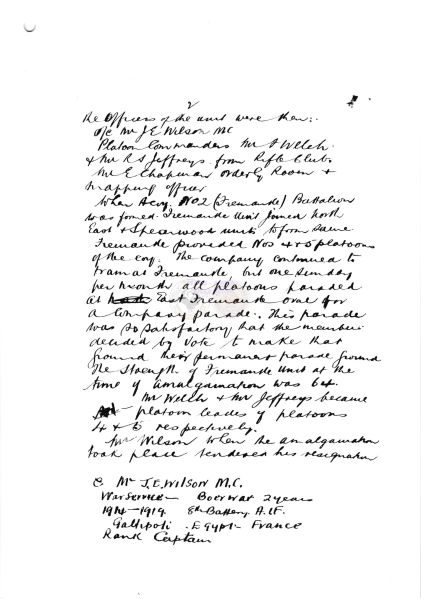 2
the Officers of the unit were then:-
o/c Mr J.E Wilson MC
Platoon Commanders Mr A Welch
& Mr R S Jeffreys from Rifle Club
Mr E Chapman Orderly Room &
mapping officer
When A coy. No 2 (Fremantle) Battalion
was formed Fremantle Unit joined north
East & Spearwood units to form same
Fremantle provided Nos 4 & 5 platoons
of the coy. The company continued to
train at Fremantle, but one Sunday
per month all platoons paraded
at East Fremantle oval for
a Company parade. This parade
was so satisfactory that the members
decided by vote to make that
ground their permanent parade ground
The strength of Fremantle Unit at the
time of amalgamation was 64.
Mr Welch & Mr Jeffreys became
platoon leaders of platoons
4 & 5 respectively.
Mr Wilson when the amalgamation
took place tendered his resignation
Mr J.E. Wilson M.C.
War Service - Boer War 2 years
1914-1919. 8th Battery A.I.F.
Gallipoli. Egypt - France
Rank Captain